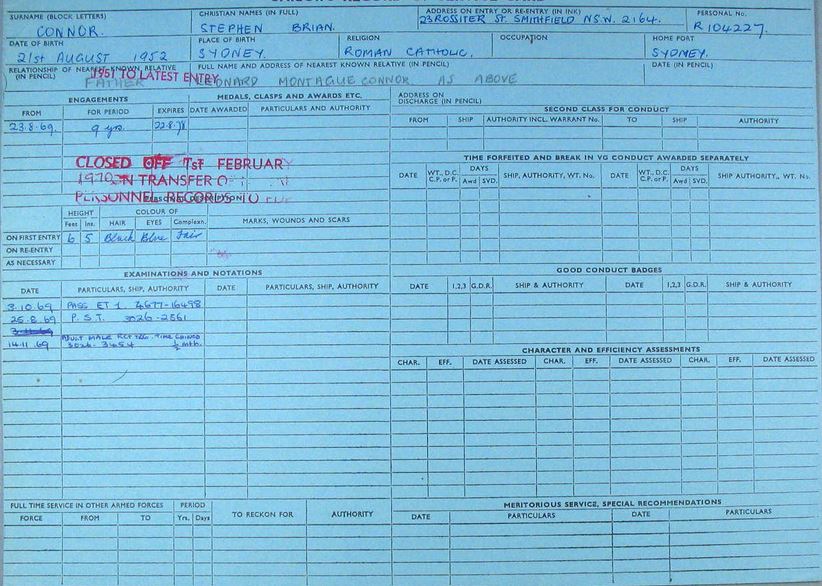 SURNAME (BLOCK LETTERS) CHRISTIAN NAMES (IN FULL) ADDRESS ON ENTRY OR RE-ENTRY (IN INK) PERSONAL No.
CONNOR. STEPHEN BRIAN. 23 ROSSITER ST. SMITHFIELD N.S.W. 2164. R104227.
DATE OF BIRTH PLACE OF BIRTH RELIGION OCCUPATION HOME PORT
21st AUGUST 1952 SYDNEY ROMAN CATHOLIC. SYDNEY.
RELATIONSHIP OF NEAREST KNOWN RELATIVE (IN PENCIL) FULL NAME AND ADDRESS OF NEAREST KNOWN RELATIVE (IN PENCIL) DATE (IN PENCIL)
1951 TO LATEST ENTRY
FATHER LEONARD MONTAGUE CONNOR AS ABOVE
ENGAGEMENTS MEDALS, CLASPS AND AWARDS ETC. ADDRESS ON DISCHARGE (IN PENCIL)
FROM FOR PERIOD EXPIRES DATE AWARDED PARTICULARS AND AUTHORITY
SECOND CLASS FOR CONDUCT
FROM SHIP AUTHORITY INCL. WARRANT No. TO SHIP AUTHORITY
23.8.69. 9 yrs.
CLOSED OFF 1st FEBRUARY
1970 ON TRANSFER O
PERSONNEL RECORDS TO
TIME FORFEITED AND BREAK IN VG CONDUCT AWARDED SEPARATELY
DATE WT., D.C. C.P. or F. DAYS Awd SVD. SHIP, AUTHORITY, WT. No. DATE WT., D.C. C.P. or F. DAYS Awd SVD. SHIP, AUTHORITY., WT. No.
PERSONAL DESCRIPTION
HEIGHT COLOUR OF MARKS, WOUNDS AND SCARS
Feet Ins. HAIR EYES Complexn.
ON FIRST ENTRY 6 5 Black Blue Fair
ON RE-ENTRY
AS NECESSARY
EXAMINATIONS AND NOTATIONS
DATE PARTICULARS, SHIP, AUTHORITY DATE PARTICULARS, SHIP, AUTHORITY
GOOD CONDUCT BADGES
DATE 1,2,3 G.D.R. SHIP & AUTHORITY DATE 1,2,3 G.D.R. SHIP & AUTHORITY
3.10.69 PASS ET 1 4677-16498
25.8.69 P.S.T. 3026-2561
14.11.69 ADULT MALE TIME GAINED
3026-3454 ½ mth.
CHARACTER AND EFFICIENCY ASSESSMENTS
CHAR. EFF. DATE ASSESSED CHAR. EFF. DATE ASSESSED CHAR. EFF. DATE ASSESSED
FULL TIME SERVICE IN OTHER ARMED FORCES PERIOD TO RECKON FOR AUTHORITY
FORCE FROM TO Yrs. Days
MERITORIOUS SERVICE, SPECIAL RECOMMENDATIONS
DATE PARTICULARS DATE PARTICULARS